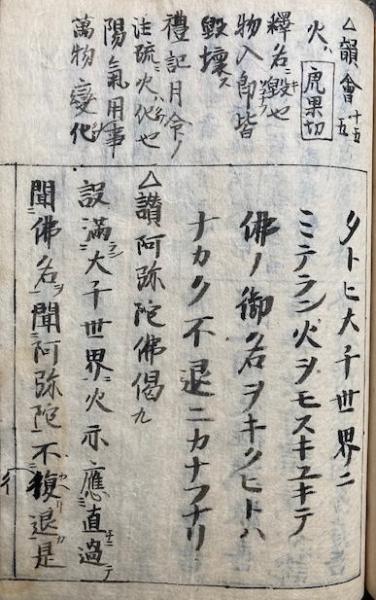 △韻會 十五
火ハ 虎果切
釋名ニ毀也
物入即皆
毀壞ス
禮記月令ノ
注疏ニ火ハ化也
陽氣用事
萬物變化
タトヒ大千世界ニ
ミテラン火ヲモスキユキテ
佛ノ御名ヲキクヒトハ
ナカク不退ニカナフナリ
△讃阿弥陀佛偈九
設滿大千世界ニ火亦應直過テ
聞佛名ヲ聞阿弥陀不復退是